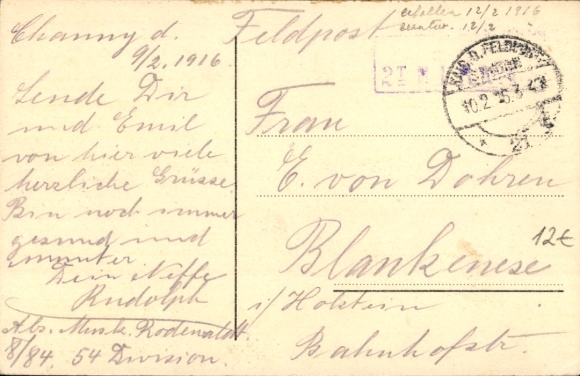 Channy d.
9/2. 1916.
Sende Dir
und Emil
von hier viele
herzliche Grüsse
Bin noch immer
gesund und
munter.
Dein Neffe
Rudolph
Abs. Musk. Rodenwoldt
8/84. 54 Division.
Feldpost
erhalten 12/2 1916
12/2
10.2.
Frau
E. von Dohren
Blankenese
i/Holstein
Bahnhofstr.
12€